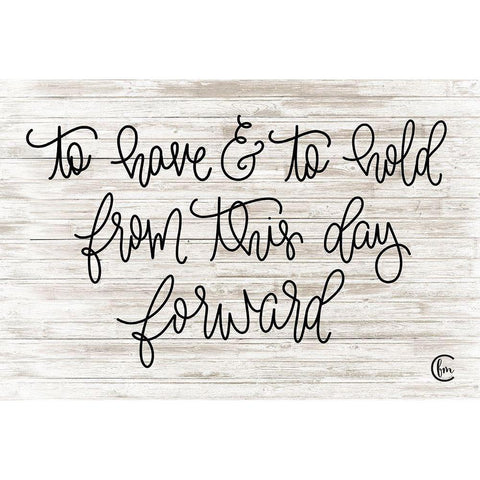 to have & to hold
from this day
forward
fbm